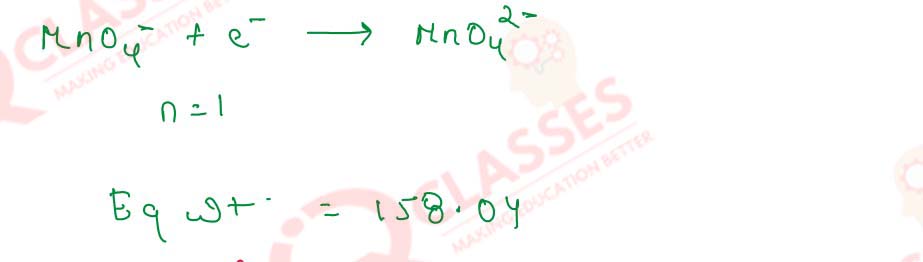 MnO₄⁻ + e⁻ → MnO₄²⁻
n = 1
Eq wt. = 158.04
CLASSES
MAKING EDUCATION BETTER
CLASSES
MAKING EDUCATION BETTER